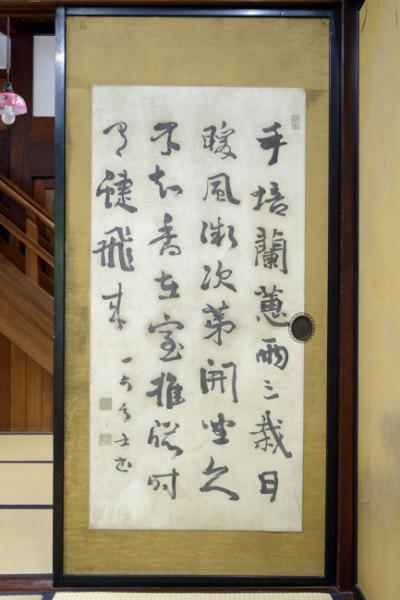 手培蘭蕙兩三栽日
暖風微次第開坐久
不知香在室推窓時
有蝶飛来
一六居士書